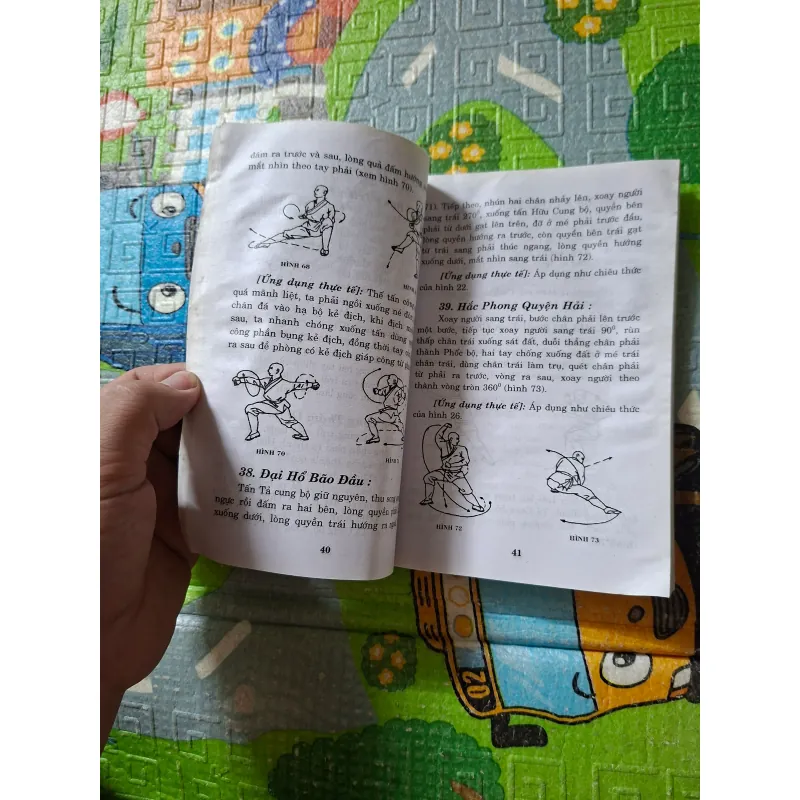 đấm ra trước và sau, lòng quả đấm hướng
mắt nhìn theo tay phải (xem hình 70).
HÌNH 68
[Ứng dụng thực tế]: Thế tấn công
quá mãnh liệt, ta phải ngồi xuống né đòn
chân đá vào hạ bộ kẻ địch, khi địch
sau, ta nhanh chóng xuống tấn dùng
công phần bụng kẻ địch, đồng thời tay
ra sau để phòng có kẻ địch giáp công từ
HÌNH 70
38. Đại Hổ Bão Đầu :
Tấn Tả cung bộ giữ nguyên, thu song
ngực rồi đấm ra hai bên, lòng quyền
xuống dưới, lòng quyền trái hướng ra
40
71). Tiếp theo, nhún hai chân nhảy lên, xoay người
sang trái 270⁰, xuống tấn Hữu Cung bộ, quyền bên
phải từ dưới gạt lên trên, đỡ ở mé phải trước đầu,
lòng quyền hướng ra trước, còn quyền bên trái gạt
từ trái sang phải thúc ngang, lòng quyền hướng
xuống dưới, mắt nhìn sang trái (hình 72).
[Ứng dụng thực tế]: Áp dụng như chiêu thức
của hình 22.
39. Hắc Phong Quyện Hải :
Xoay người sang trái, bước chân phải lên trước
một bước, tiếp tục xoay người sang trái 90⁰, rùn
thấp chân trái xuống sát đất, duỗi thẳng chân phải
thành Phốc bộ, hai tay chống xuống đất ở mé trái
chân trái, dùng chân trái làm trụ, quét chân phải
từ phải ra trước, vòng ra sau, xoay người theo
thành vòng tròn 360⁰ (hình 73).
[Ứng dụng thực tế]: Áp dụng như chiêu thức
của hình 26.
HÌNH 72
HÌNH 73
41
02